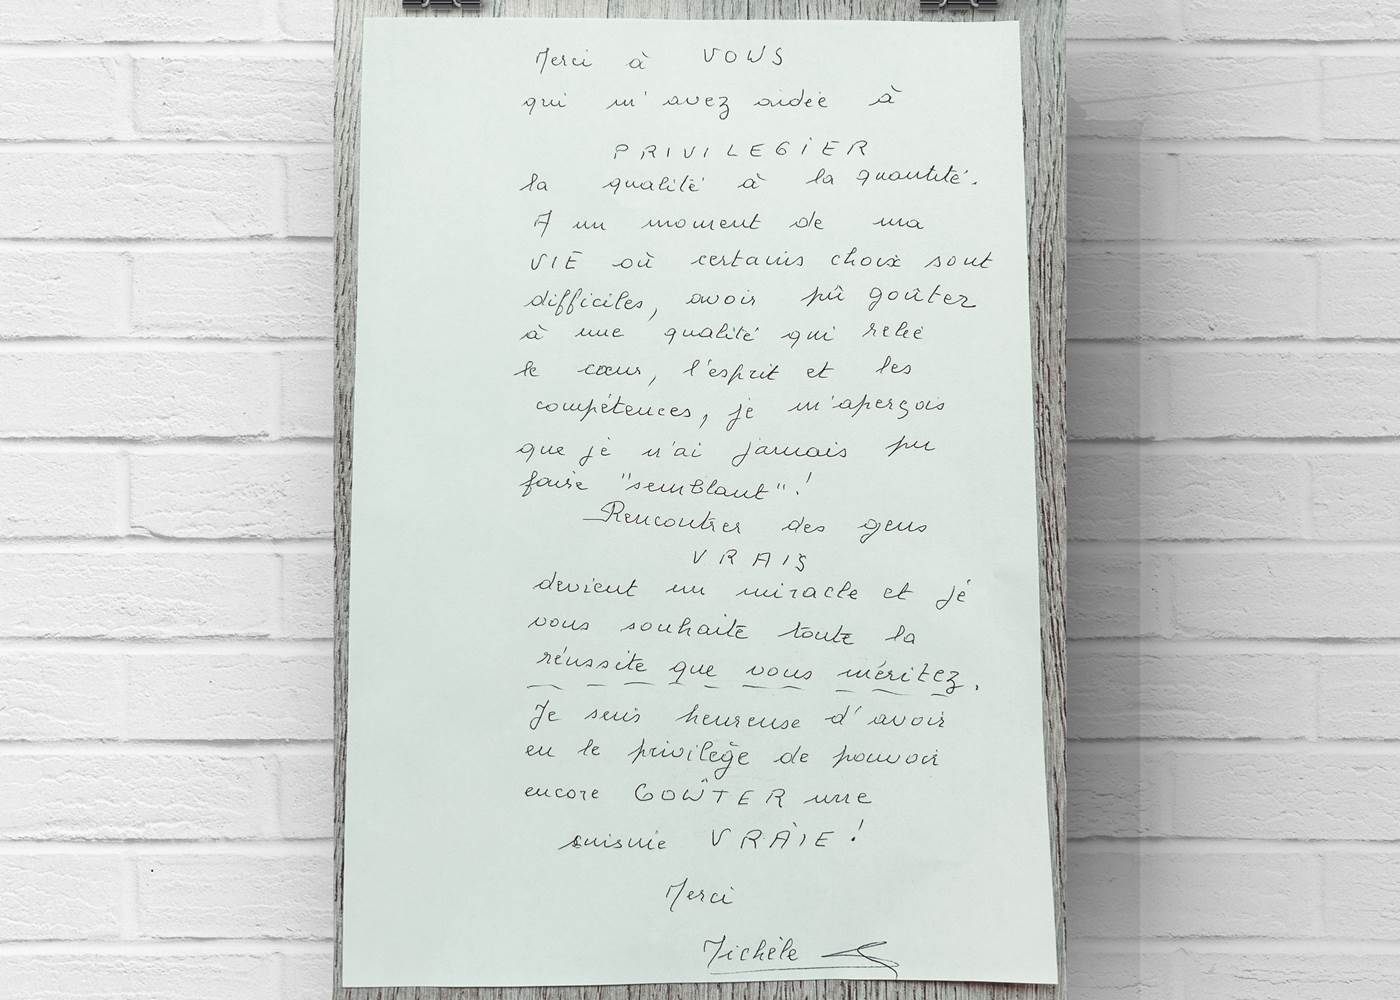 Merci à VOUS
qui m'avez aidée à
PRIVILEGIER
la qualité à la quantité.
A un moment de ma
VIE où certains choix sont
difficiles, avoir pû goûter
à une qualité qui relie
le cœur, l'esprit et les
compétences, je m'aperçois
que je n'ai jamais pu
faire "semblant"!
Rencontrer des gens
VRAIS
devient un miracle et je
vous souhaite toute la
réussite que vous méritez.
Je suis heureuse d'avoir
eu le privilège de pouvoir
encore GOÛTER une
cuisine VRAIE!
Merci
Michèle